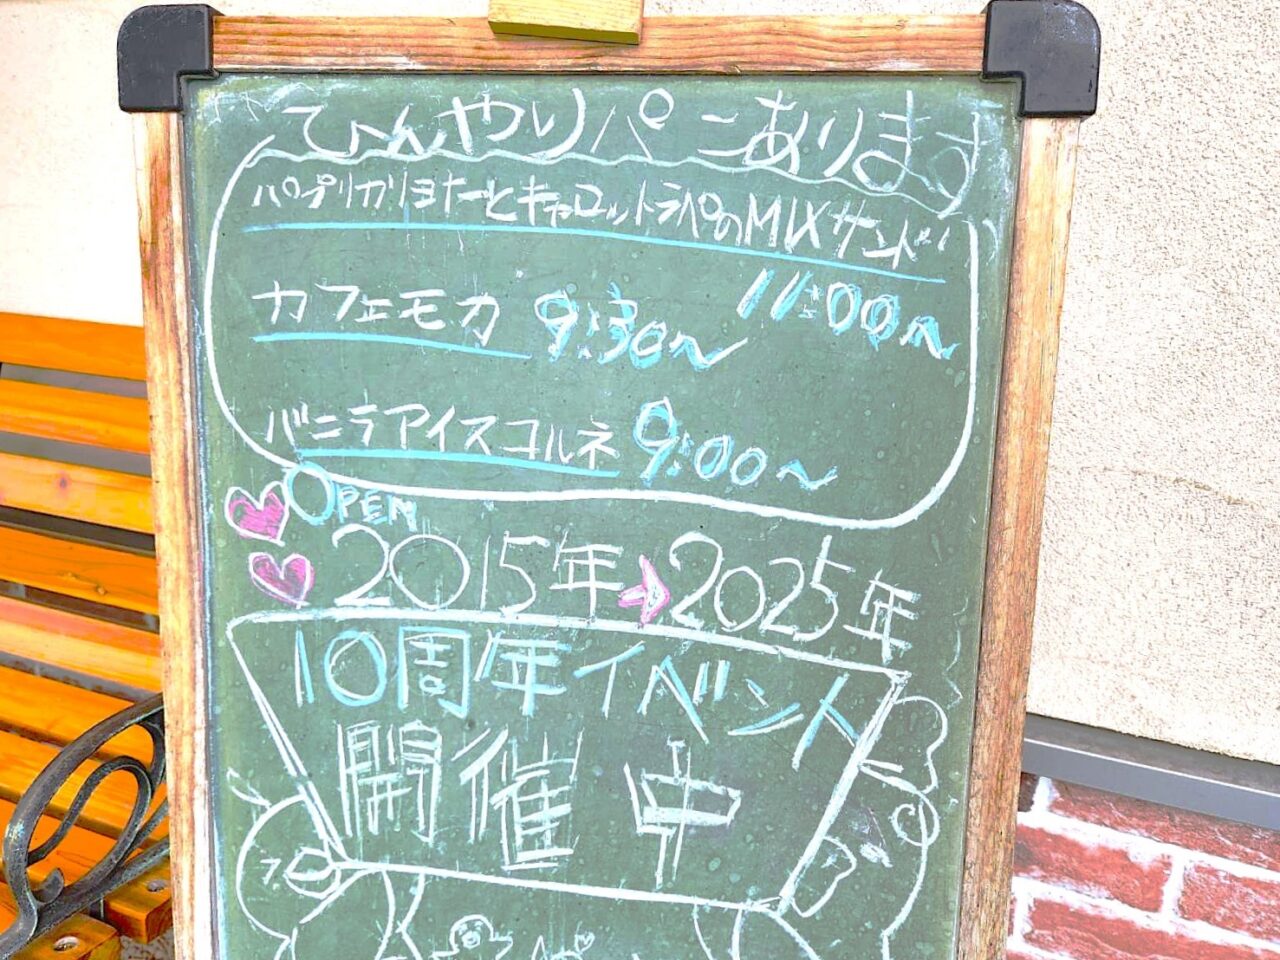 ひんやりパンあります
パプリカリヨナーとキャロットラペのMIXサンド
11:00〜
カフェモカ 9:30〜
バニラアイスコルネ 9:00〜
OPEN
2015年→2025年
10周年イベント
開催中